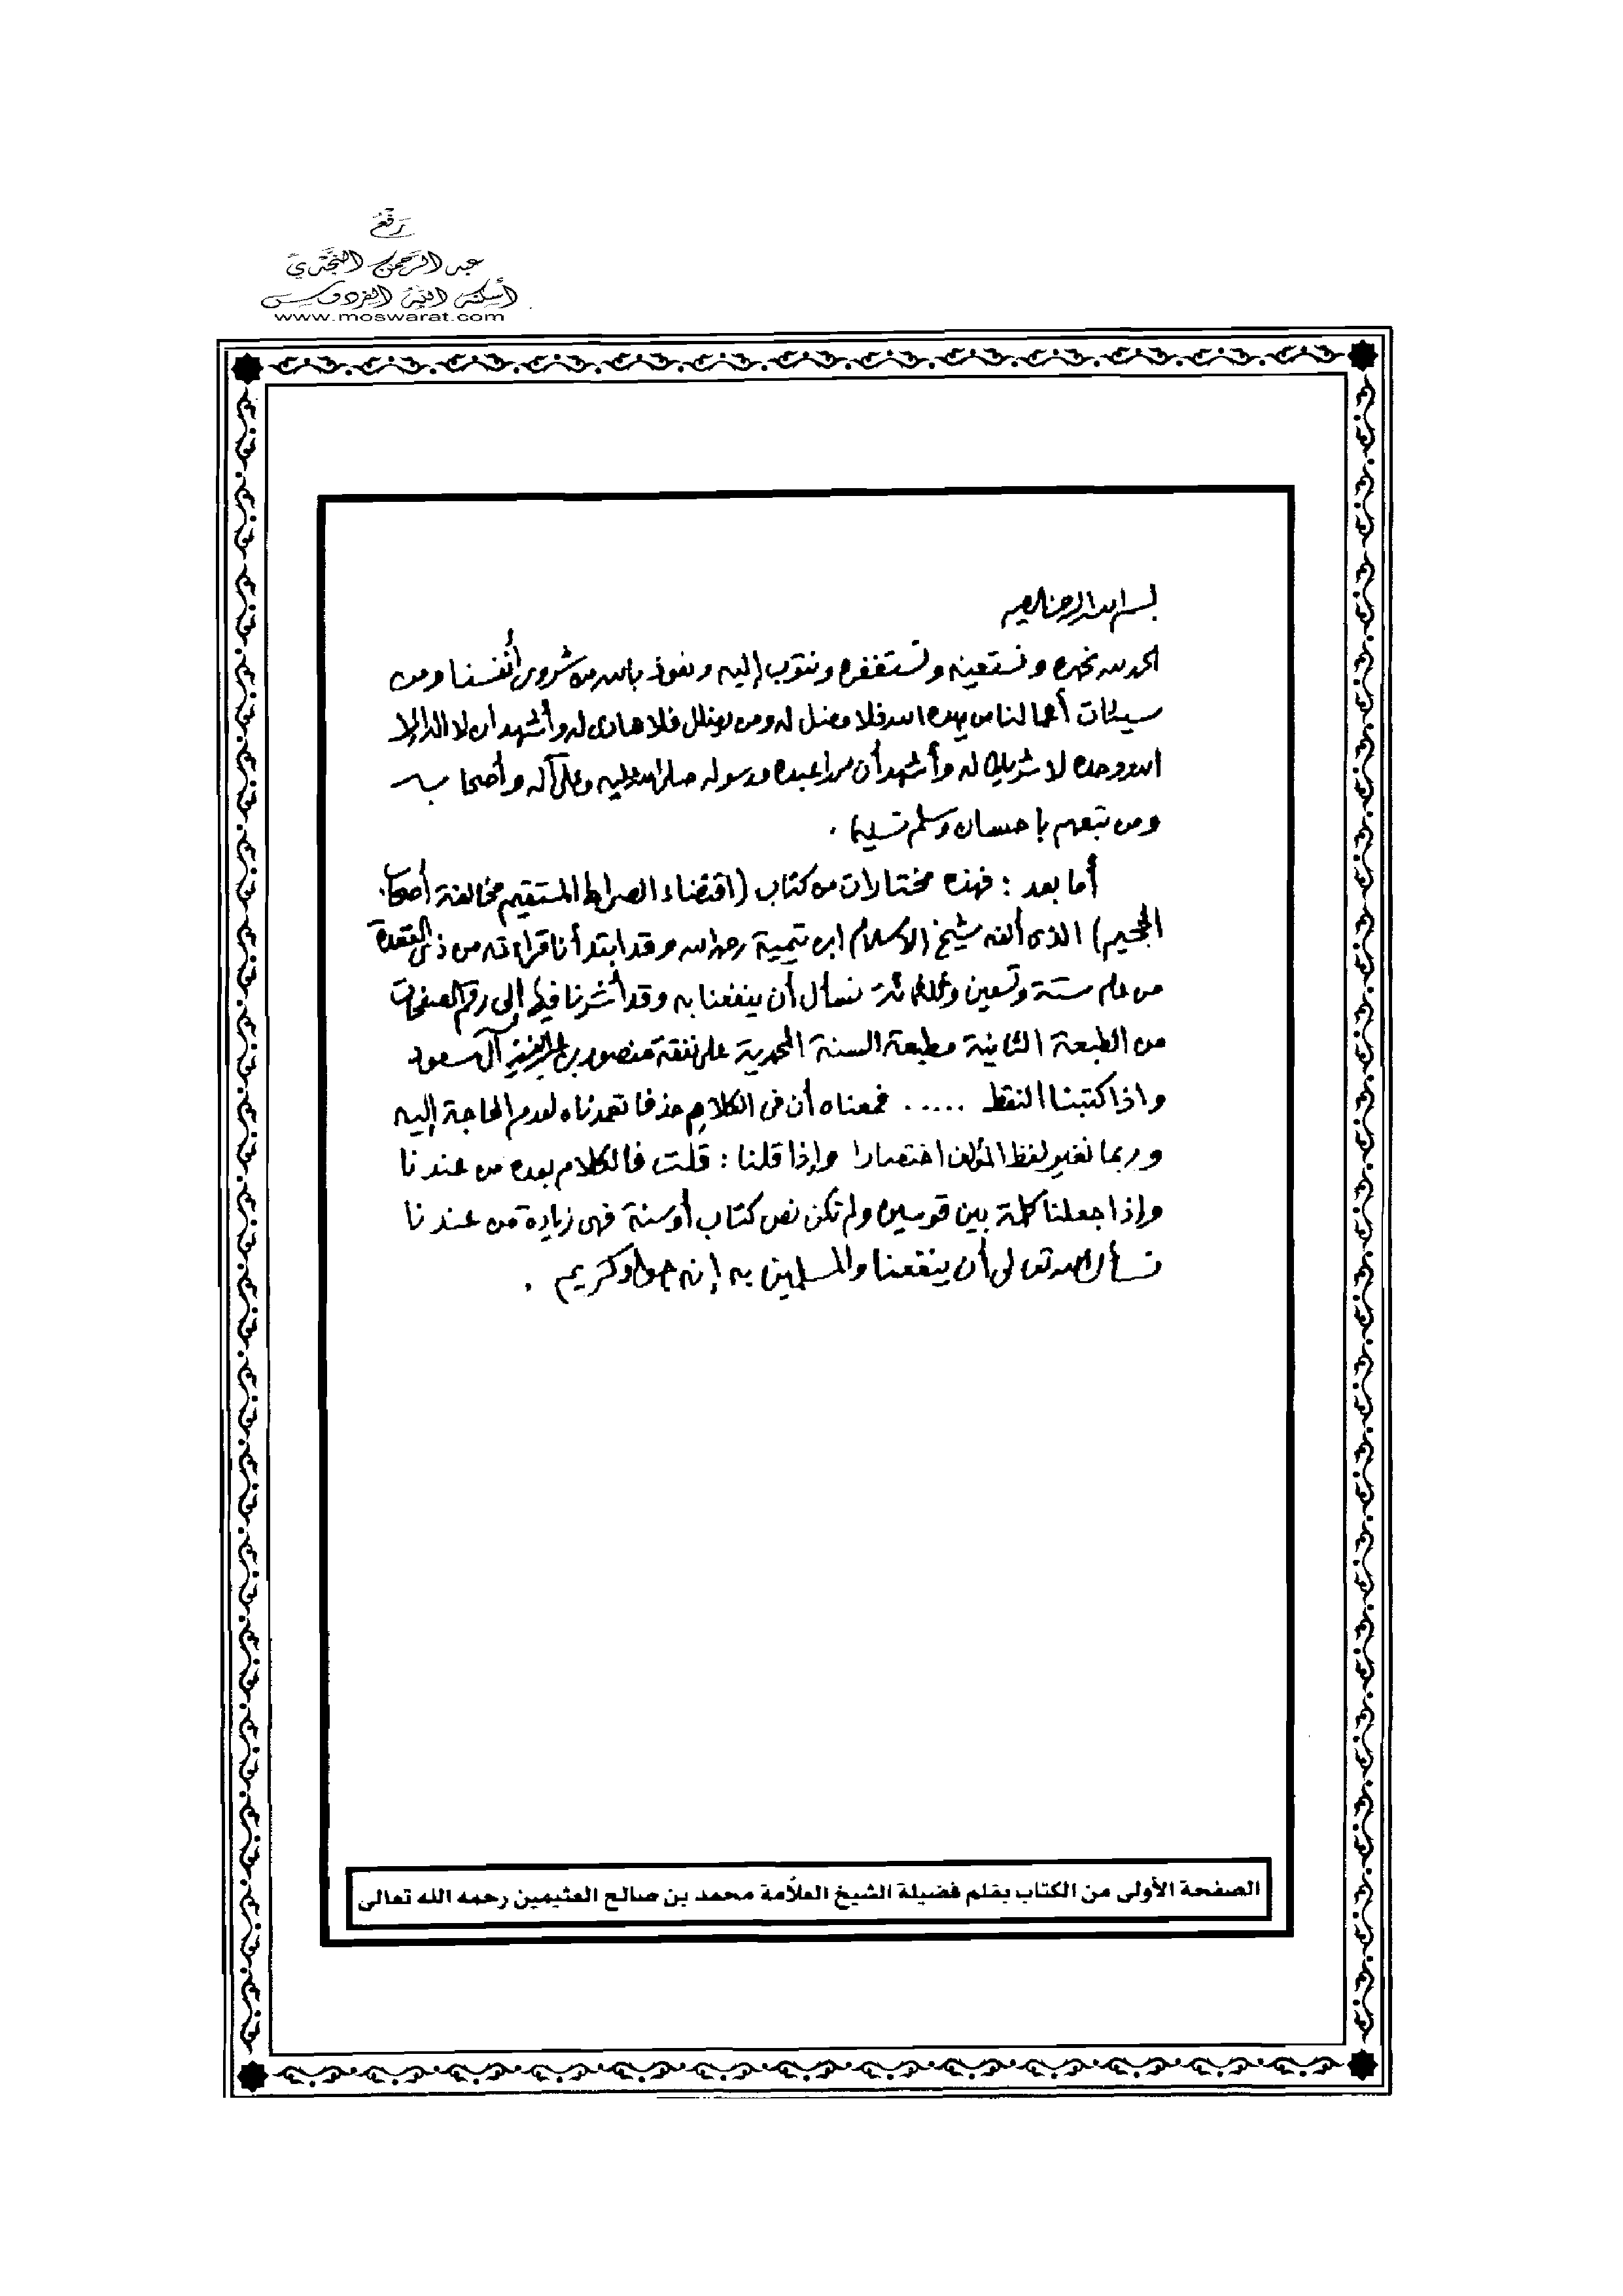 رَفَعُ
عبد الرحمن النجدي
أسكنه الله الفردوس
www.moswarat.com
بسم الله الرحمن الرحيم
الحمد لله نحمده ونستعينه ونستغفره ونتوب إليه ونعوذ بالله من شرور أنفسنا ومن
سيئات أعمالنا من يهده الله فلا مضل له ومن يضلل فلا هادى له وأشهد أن لا اله إلا
الله وحده لا شريك له وأشهد أن محمدا عبده ورسوله صلى الله عليه وعلى آله وأصحابه
ومن تبعهم بإحسان وسلم تسليما .
أما بعد : فهذه مختارات من كتاب (اقتضاء الصراط المستقيم مخالفة أصحاب
الجحيم) الذى ألفه شيخ الإسلام ابن تيمية رحمه الله وقد ابتدأنا قراءته من ذى القعدة
من عام ستة وتسعين وثلثمائة نسأل أن ينفعنا به وقد أشرنا فيها إلى رقم الصفحات
من الطبعة الثانية مطبعة السنة المحمدية على نفقة منصور بن عبد العزيز آل سعود
واذا كتبنا النقط ..... فمعناه أن فى الكلام حذفا تعمدناه لعدم الحاجة إليه
وربما نغير لفظ المؤلف اختصارا وإذا قلنا : قلت فالكلام بعده من عندنا
وإذا جعلنا كلمة بين قوسين ولم تكن نص كتاب أو سنة فهى زيادة من عندنا
نسأل الله تعالى أن ينفعنا والمسلمين به إنه جواد كريم .
الصفحة الأولى من الكتاب بقلم فضيلة الشيخ العلاّمة محمد بن صالح العثيمين رحمه الله تعالى